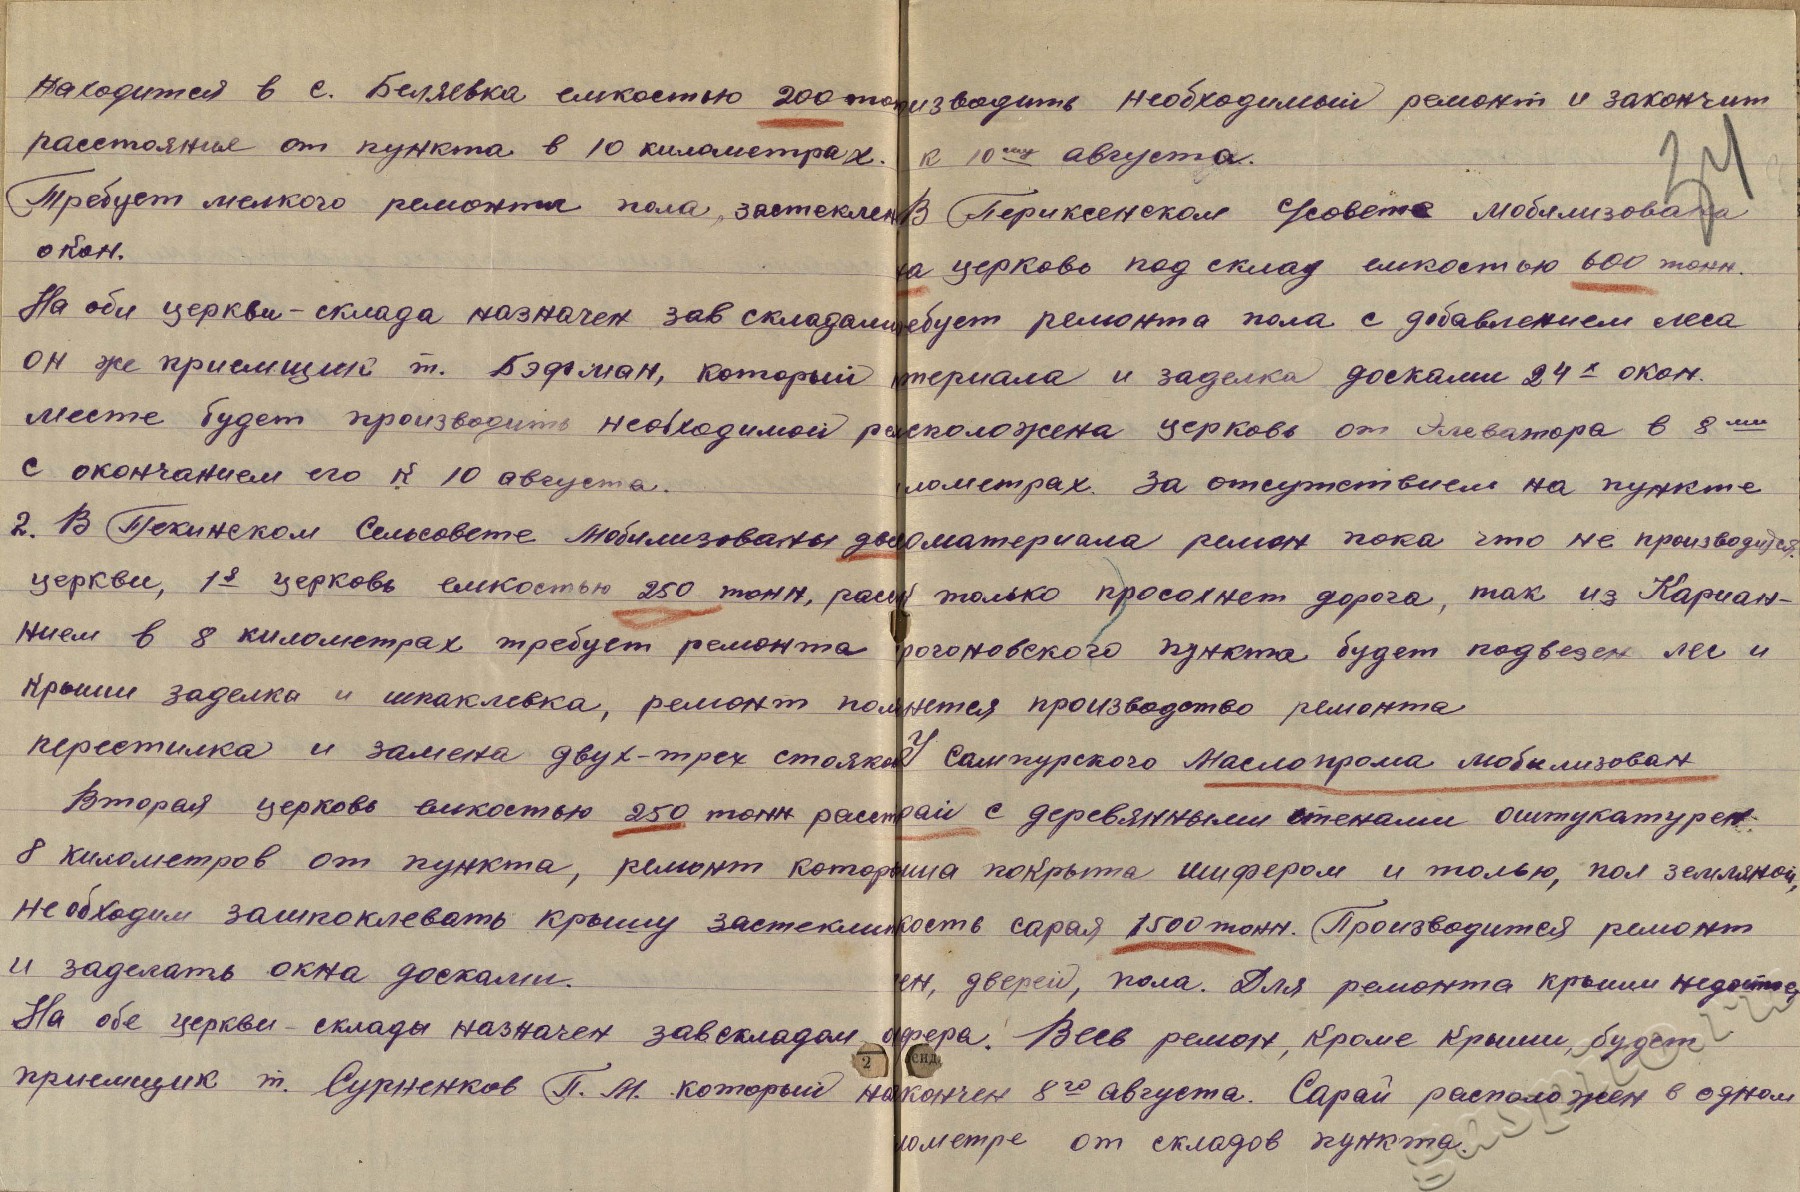 находится в с. Беляевка емкостью 200 тон
расстояния от пункта в 10 километрах.
Требует мелкого ремонта пола, застеклен
окон.
На оби церкви-склада назначен зав складами
он же приемщик т. Бэфман, который
месте будет производить необходимой р
с окончанием его к 10 августа.
2. В Пекинском Сельсовете мобилизованы две
церкви, 1я церковь емкостью 250 тонн, расп
нием в 8 километрах требует ремонта
крыши заделка и шпаклевка, ремонт пола
перестилка и замена двух-трех стояков
Вторая церковь емкостью 250 тонн расст
8 километров от пункта, ремонт которы
необходим зашпоклевать крышу застеклит
и заделать окна досками.
На обе церкви-склады назначен завскладом
приемщик т. Сурненков П. М. который на
изводить необходимый ремонт и закончит
к 10му августа.
В Периксенском С/совете мобилизована
на церковь под склад емкостью 600 тонн.
ебует ремонта пола с добавлением леса
териала и заделка досками 24х окон.
сположена церковь от Элеватора в 8ми
лометрах. За отсутствием на пункте
оматериала ремон пока что не производится.
только просохнет дорога, так из Кариан-
рогоновского пункта будет подвезен лес и
нется производство ремонта
У Сампурского Маслопрома мобилизован
рай с деревянными стенами оштукатурен.
ша покрыта шифером и толью, пол земляной,
кость сарая 1500 тонн. Производится ремонт
ен, дверей, пола. Для ремонта крыши недостает
фера. Весь ремон, кроме крыши, будет
кончен 8го августа. Сарай расположен в одном
лометре от складов пункта.
34
2
снд.
gaspito.ru